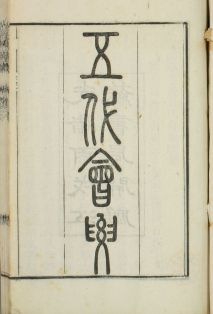 五代會要